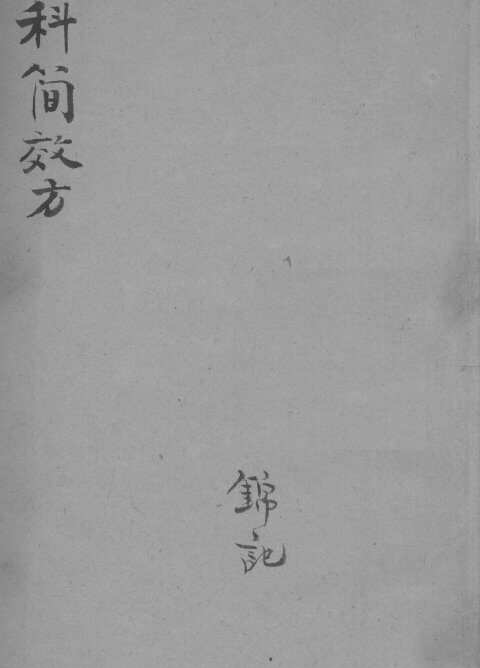 科简效方
錦記